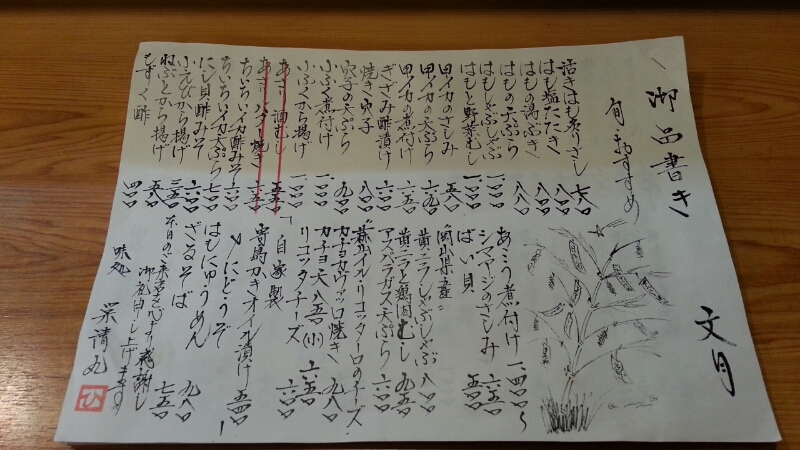 御品書き
文月
旬のおすすめ
活きはも炙りさし 七八〇
はも塩たたき 八〇〇
はもの湯ぶき 八〇〇
はもの天ぷら 八八〇
はもしゃぶしゃぶ
はもと野菜むし
甲イカのさしみ 五八〇
甲イカの天ぷら
甲イカの煮付け
ぎざみ酢漬け 六五〇
焼き穴子 八〇〇
穴子の天ぷら 九〇〇
小ふぐ煮付け
小ふぐから揚げ
あさり酒むし 五五〇
あさりバター焼き 六五〇
ちいちいイカ酢みそ
ちいちいイカ天ぷら
にし貝酢みそ 七〇〇
小えびから揚げ 三五〇
ねぶとから揚げ 五八〇
もずく酢 四〇〇
あこう煮付け 一、四〇〇〜
シマアジのさしみ
ばい貝 六〇〇
岡山県産
黄ニラしゃぶしゃぶ 八〇〇
黄ニラと鶏肉むし 九五〇
アスパラガス天ぷら 六〇〇
カチョカヴァッロ焼き 九八〇
カチョ天 八五〇
リコッタチーズ 六〇〇
自家製
寄島かきオイル漬け 五四〇
〆にどうぞ
はもにゅうめん 九八〇
ざるそば 七五〇
本日のご来店心より感謝し
御礼申し上げます
味処
栄清丸
ひ